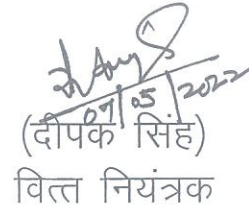 07/05/2022
(दीपक सिंह)
वित्त नियंत्रक